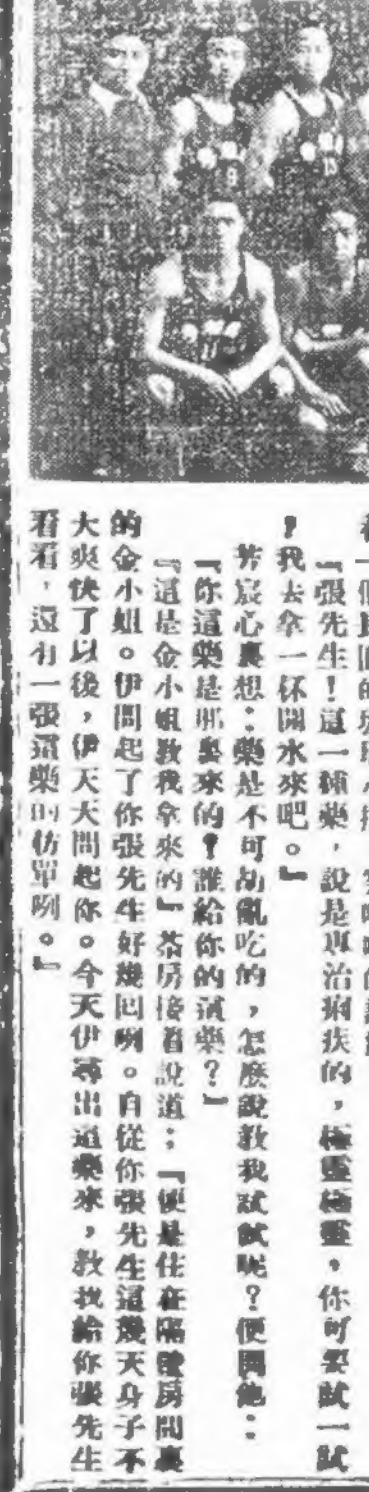 『張先生！這一種藥，說是專治痢疾的，極靈極靈，你可要試一試
？我去拿一杯開水來吧。』
芳宸心裏想：藥是不可胡亂吃的，怎麼說教我試試呢？便問他：
『你這藥是那裏來的？誰給你的這藥？』
『這是金小姐教我拿來的』茶房接着說道：『便是住在隔壁房間裏
的金小姐。伊問起了你張先生好幾回咧。自從你張先生這幾天身子不
大爽快了以後，伊天天問起你。今天伊尋出這藥來，教我給你張先生
看看，還有一張這藥的仿單咧。』
9
13
11